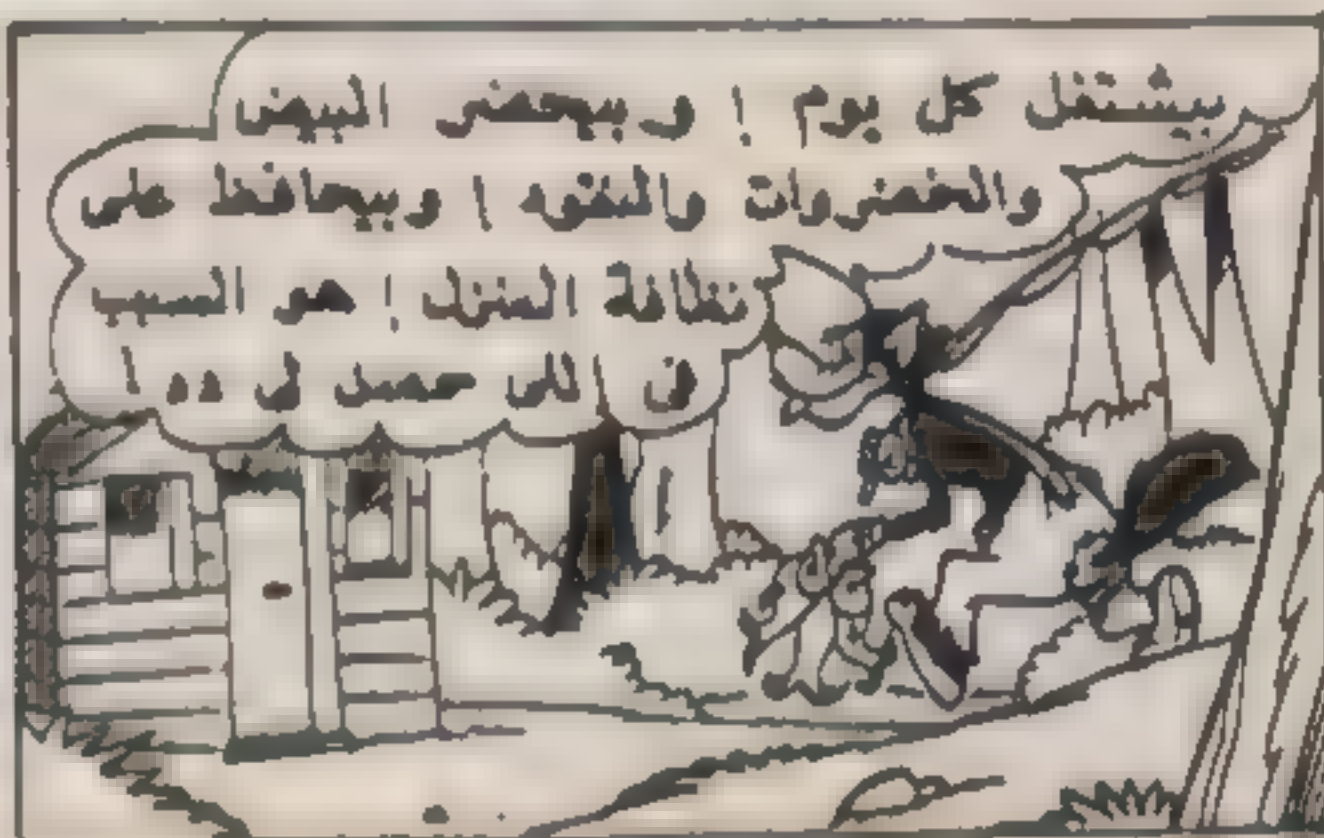 بيشتغل كل يوم ! وبيحضر البيض
والخضروات والنقود ! وبيحافظ على
نظافة المنزل ! هو السبب
ن للى حصل لى ده !